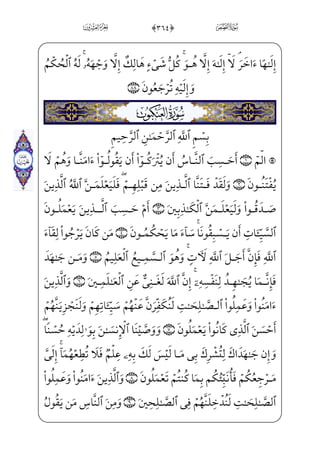 سُورَةُ القَصَصِ ﴿٣٦٤﴾ الجُزْءُ العِشْرُونَ
إِلَـٰهًا ءَاخَرَ ۘ لَآ إِلَـٰهَ إِلَّا هُوَ ۚ كُلُّ شَىْءٍ هَالِكٌ إِلَّا وَجْهَهُۥ ۚ لَهُ ٱلْحُكْمُ
وَإِلَيْهِ تُرْجَعُونَ ۝٨٨
سُورَةُ العَنكَبُوتِ
بِسْمِ ٱللَّهِ ٱلرَّحْمَـٰنِ ٱلرَّحِيمِ
۞ الٓمٓ ۝١ أَحَسِبَ ٱلنَّاسُ أَن يُتْرَكُوٓا۟ أَن يَقُولُوٓا۟ ءَامَنَّا وَهُمْ لَا
يُفْتَنُونَ ۝٢ وَلَقَدْ فَتَنَّا ٱلَّذِينَ مِن قَبْلِهِمْ ۖ فَلَيَعْلَمَنَّ ٱللَّهُ ٱلَّذِينَ
صَدَقُوا۟ وَلَيَعْلَمَنَّ ٱلْكَـٰذِبِينَ ۝٣ أَمْ حَسِبَ ٱلَّذِينَ يَعْمَلُونَ
ٱلسَّيِّـَٔاتِ أَن يَسْبِقُونَا ۚ سَآءَ مَا يَحْكُمُونَ ۝٤ مَن كَانَ يَرْجُوا۟ لِقَآءَ
ٱللَّهِ فَإِنَّ أَجَلَ ٱللَّهِ لَـَٔاتٍ ۚ وَهُوَ ٱلسَّمِيعُ ٱلْعَلِيمُ ۝٥ وَمَن جَـٰهَدَ
فَإِنَّمَا يُجَـٰهِدُ لِنَفْسِهِۦٓ ۚ إِنَّ ٱللَّهَ لَغَنِىٌّ عَنِ ٱلْعَـٰلَمِينَ ۝٦ وَٱلَّذِينَ
ءَامَنُوا۟ وَعَمِلُوا۟ ٱلصَّـٰلِحَـٰتِ لَنُكَفِّرَنَّ عَنْهُمْ سَيِّـَٔاتِهِمْ وَلَنَجْزِيَنَّهُمْ
أَحْسَنَ ٱلَّذِى كَانُوا۟ يَعْمَلُونَ ۝٧ وَوَصَّيْنَا ٱلْإِنسَـٰنَ بِوَٰلِدَيْهِ حُسْنًا ۖ
وَإِن جَـٰهَدَاكَ لِتُشْرِكَ بِى مَا لَيْسَ لَكَ بِهِۦ عِلْمٌ فَلَا تُطِعْهُمَآ ۚ إِلَىَّ
مَرْجِعُكُمْ فَأُنَبِّئُكُم بِمَا كُنتُمْ تَعْمَلُونَ ۝٨ وَٱلَّذِينَ ءَامَنُوا۟ وَعَمِلُوا۟
ٱلصَّـٰلِحَـٰتِ لَنُدْخِلَنَّهُمْ فِى ٱلصَّـٰلِحِينَ ۝٩ وَمِنَ ٱلنَّاسِ مَن يَقُولُ